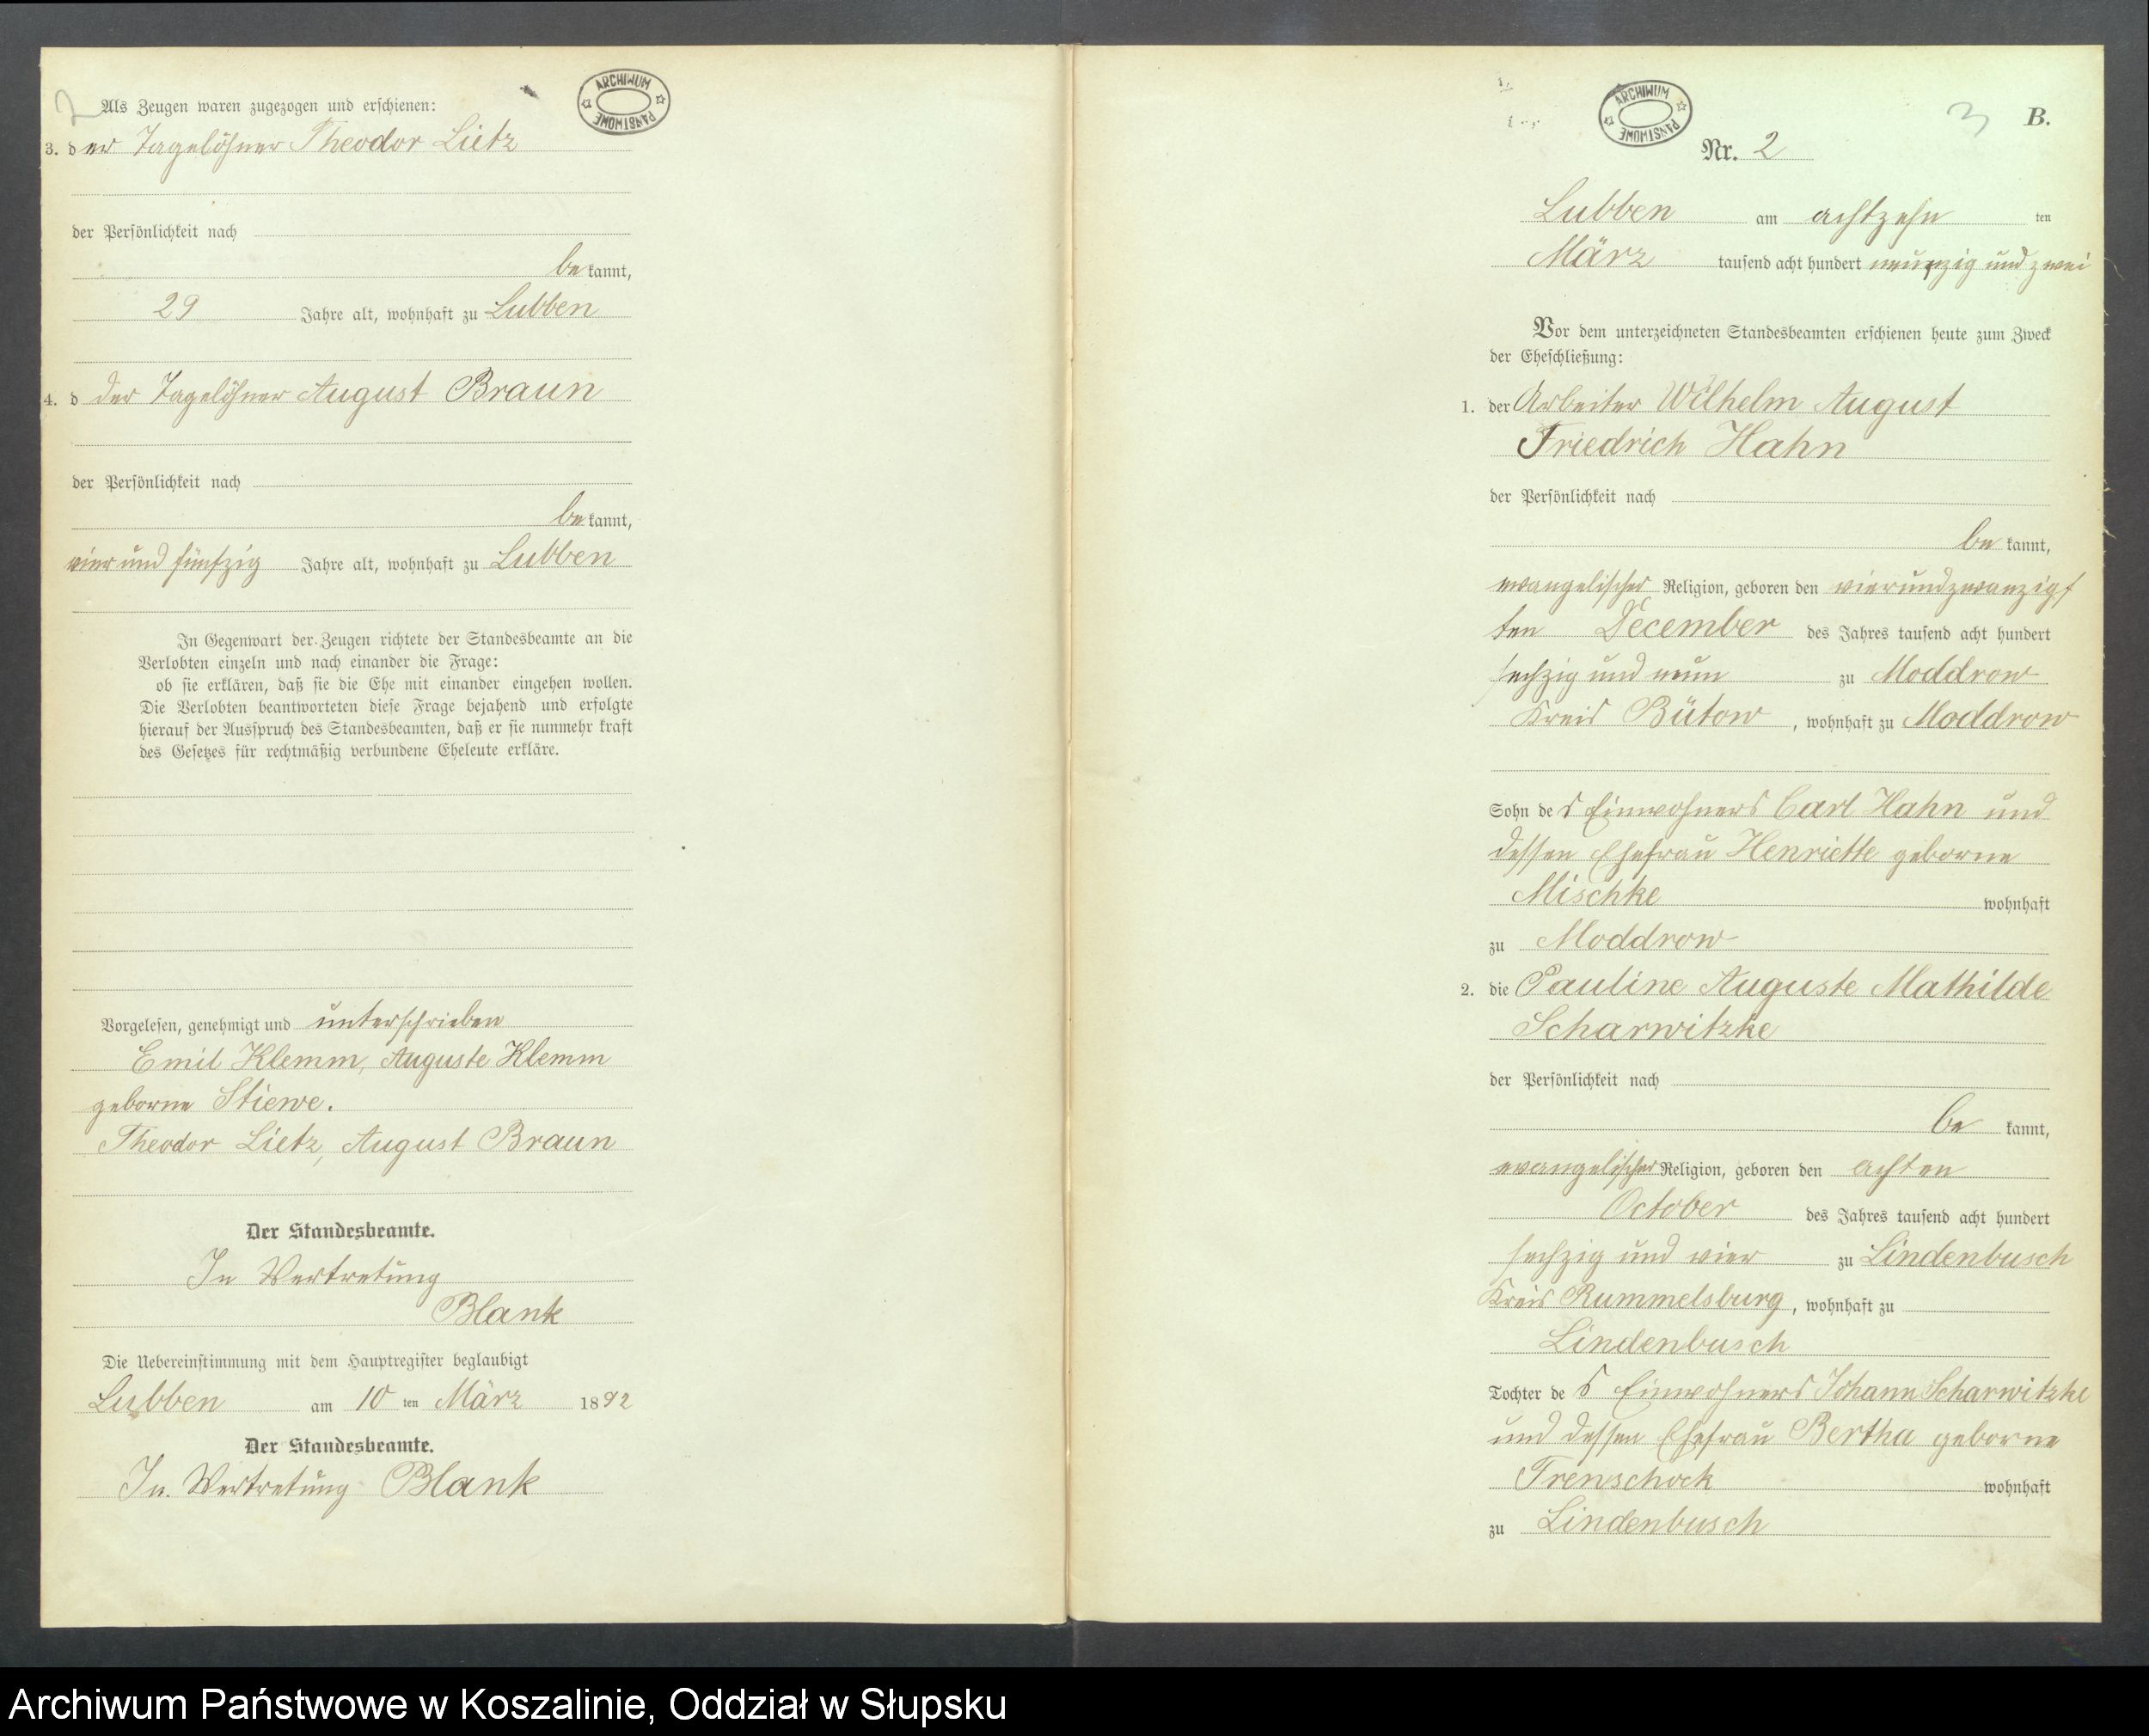 2
Als Zeugen waren zugezogen und erschienen:
ARCHIWUM PAŃSTWOWE
3. der Tagelöhner Theodor Lietz
der Persönlichkeit nach
bekannt,
29 Jahre alt, wohnhaft zu Lubben
4. d der Tagelöhner August Braun
der Persönlichkeit nach
bekannt,
vier und fünfzig Jahre alt, wohnhaft zu Lubben
In Gegenwart der Zeugen richtete der Standesbeamte an die
Verlobten einzeln und nach einander die Frage:
ob sie erklären, daß sie die Ehe mit einander eingehen wollen.
Die Verlobten beantworteten diese Frage bejahend und erfolgte
hierauf der Ausspruch des Standesbeamten, daß er sie nunmehr kraft
des Gesetzes für rechtmäßig verbundene Eheleute erkläre.
Vorgelesen, genehmigt und unterschrieben
Emil Klemm, Auguste Klemm
geborne Stiewe.
Theodor Lietz, August Braun
Der Standesbeamte.
In Vertretung
Blank
Die Uebereinstimmung mit dem Hauptregister beglaubigt
Lubben am 10 ten März 1892
Der Standesbeamte.
In Vertretung Blank
ARCHIWUM PAŃSTWOWE
3 B.
Nr. 2
Lubben am achtzehn ten
März tausend acht hundert neunzig und zwei
Vor dem unterzeichneten Standesbeamten erschienen heute zum Zweck
der Eheschließung:
1. der Arbeiter Wilhelm August
Friedrich Hahn
der Persönlichkeit nach
be kannt,
evangelischer Religion, geboren den vierundzwanzigs
ten December des Jahres tausend acht hundert
sechzig und neun zu Moddrow
Kreis Bütow, wohnhaft zu Moddrow
Sohn des Einwohners Carl Hahn und
dessen Ehefrau Henriette geborne
Mischke wohnhaft
zu Moddrow
2. die Pauline Auguste Mathilde
Scharwitzke
der Persönlichkeit nach
be kannt,
evangelischer Religion, geboren den achten
October des Jahres tausend acht hundert
sechzig und vier zu Lindenbusch
Kreis Rummelsburg, wohnhaft zu
Lindenbusch
Tochter des Einwohners Johann Scharwitzke
und dessen Ehefrau Bertha geborne
Trenschock wohnhaft
zu Lindenbusch
Archiwum Państwowe w Koszalinie, Oddział w Słupsku